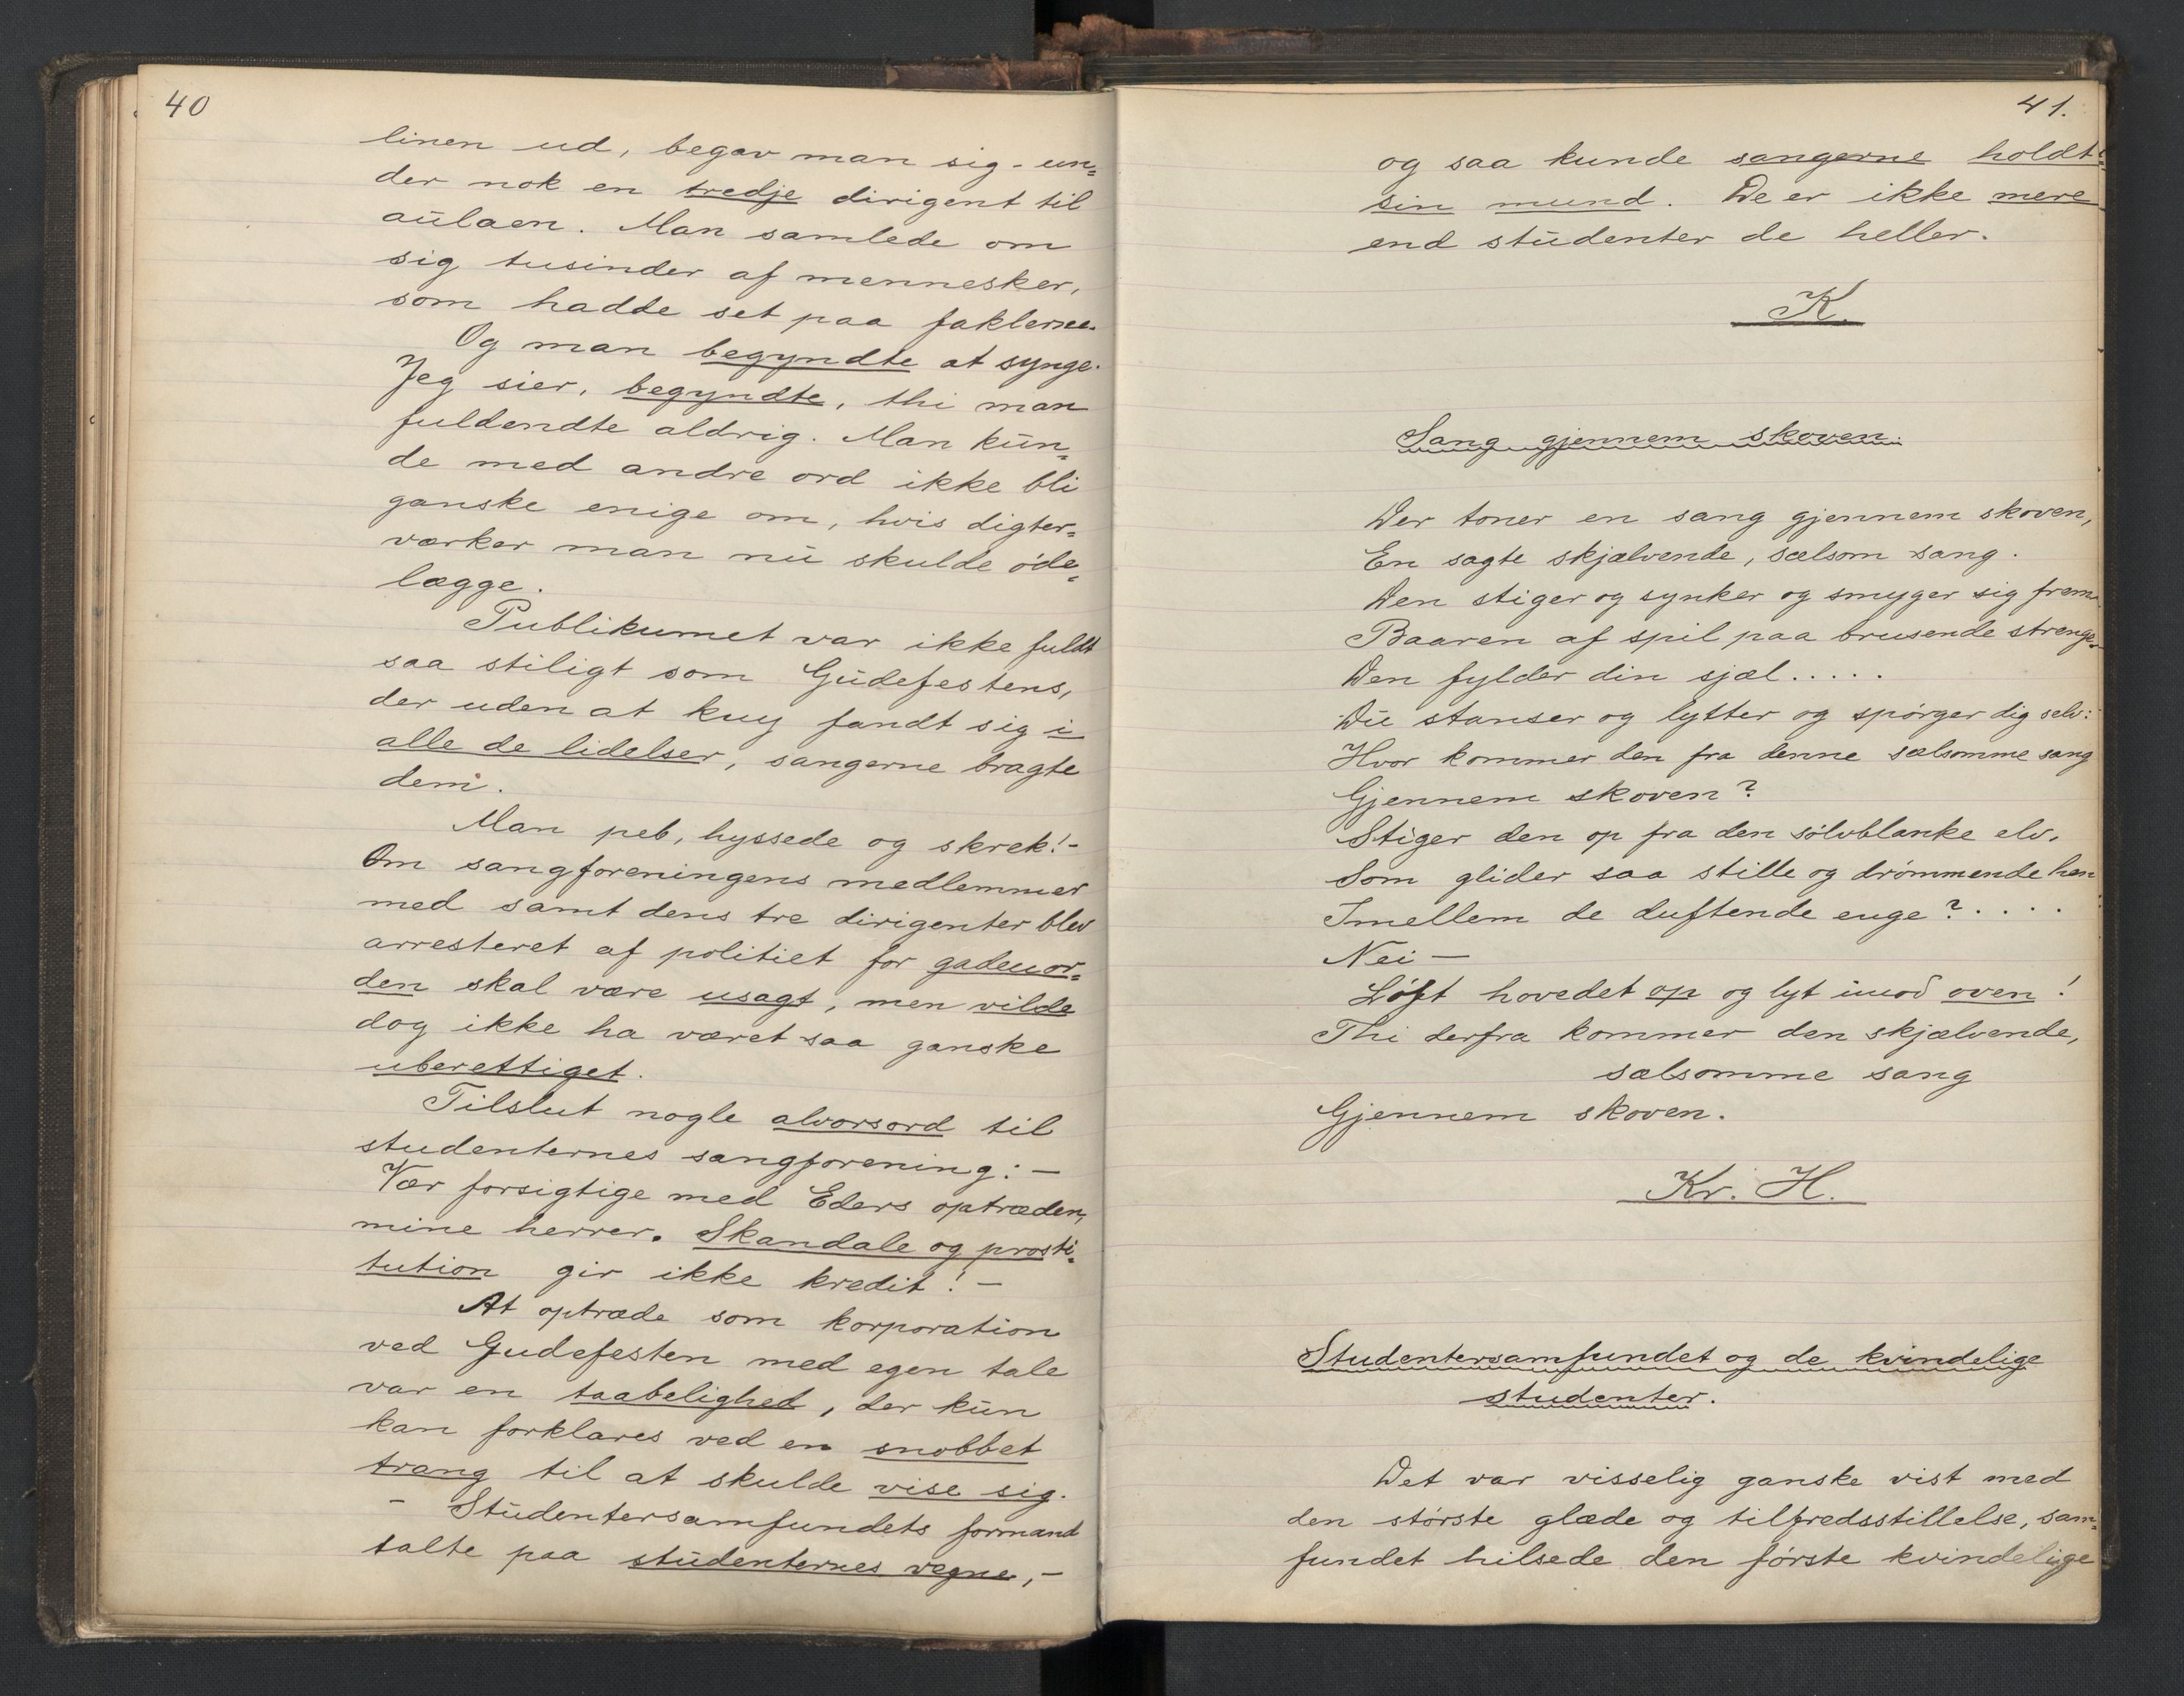 40
linen ud, begav man sig - un=
der nok en tredje dirigent til
aulaen. Man samlede om
sig tusinder af mennesker,
som hadde set paa faklerne.
Og man begyndte at synge.
Jeg sier, begyndte, thi man
fuldendte aldrig. Man kun=
de med andre ord ikke bli
ganske enige om, hvis digter=
værker man nu skulde øde=
lægge.
Publikumet var ikke fuldt
saa stiligt som Gudefestens,
der uden at kny fandt sig i
alle de lidelser, sangerne bragte
dem.
Man peb, hyssede og skrek! -
Om sangforeningens medlemmer
med samt dens tre dirigenter blev
arresteret af politiet for gadeuor=
den skal være usagt, men vilde
dog ikke ha været saa ganske
uberettiget.
Tilslut nogle alvorsord til
studenternes sangforening: -
Vær forsigtige med Eders optræden,
mine herrer. Skandale og prosti=
tution gir ikke kredit! -
At optræde som korporation
ved Gudefesten med egen tale
var en taabelighed, der kun
kan forklares ved en snobbet
trang til at skulde vise sig.
- Studentersamfundets formand
talte paa studenternes vegne, -
41.
og saa kunde sangerne holdt
sin mund. De er ikke mere
end studenter de heller.
K.
Sang gjennem skoven.
Der toner en sang gjennem skoven,
En sagte skjælvende, sælsom sang.
Den stiger og synker og smyger sig frem
Baaren af spil paa brusende strenge.
Den fylder din sjæl.....
Du stanser og lytter og spørger dig selv:
Hvor kommer den fra denne sælsomme sang
Gjennem skoven?
Stiger den op fra den sølvblanke elv,
Som glider saa stille og drømmende hen
Imellem de duftende enge?....
Nei -
Løft hovedet op og lyt imod oven!
Thi derfra kommer den skjælvende,
sælsomme sang
Gjennem skoven.
Kr. H.
Studentersamfundet og de kvindelige
studenter.
Det var visselig ganske vist med
den største glæde og tilfredsstillelse, sam=
fundet hilsede den første kvindelige